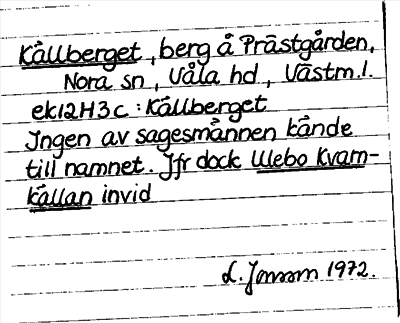 Källberget, berg å Prästgården,
Nora sn, Våla hd, Västm.l.
ek12H3c: Källberget
Ingen av sagesmännen kände
till namnet. Jfr dock Ulebo Kvarn-
källan invid
L. Jonsson 1972.